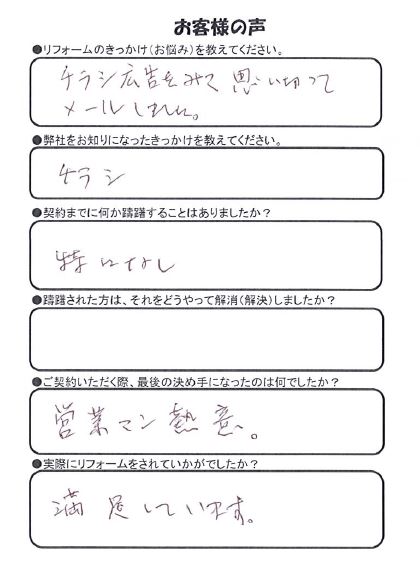 お客様の声
●リフォームのきっかけ（お悩み）を教えてください。
チラシ広告をみて思い切って
メールしました。
●弊社をお知りになったきっかけを教えてください。
チラシ
●契約までに何か躊躇することはありましたか？
特になし
●躊躇された方は、それをどうやって解消（解決）しましたか？
●ご契約いただく際、最後の決め手になったのは何でしたか？
営業マン熱意。
●実際にリフォームをされていかがでしたか？
満足しています。